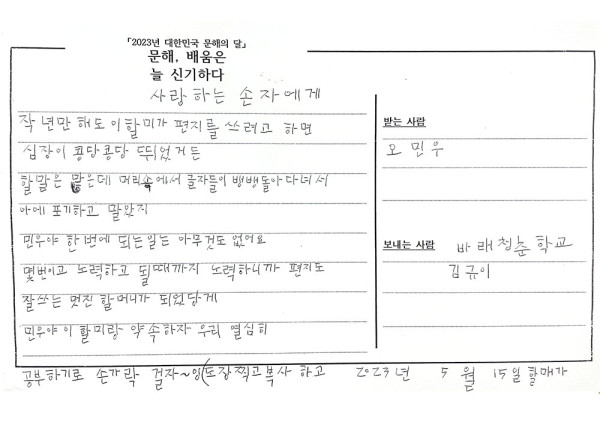 「2023년 대한민국 문해의 달」
문해, 배움은
늘 신기하다
사랑하는 손자에게
작년만 해도 이할미가 편지를 쓰려고 하면
심장이 콩당콩당 뛰었거든
할말은 많은데 머리속에서 글자들이 뱅뱅돌아다녀서
아에 포기하고 말았지
민우야 한번에 되는일는 아무것도 없어요
몇번이고 노력하고 될때까지 노력하니까 편지도
잘쓰는 멋진 할머니가 되었당게
민우야 이 할미랑 약속하자 우리 열심히
공부하기로 손가락 걸자~잉(도장찍고복사 하고
2023년 5월 15일 할매가
받는 사람
오 민우
보내는 사람 바래청춘학교
김규이